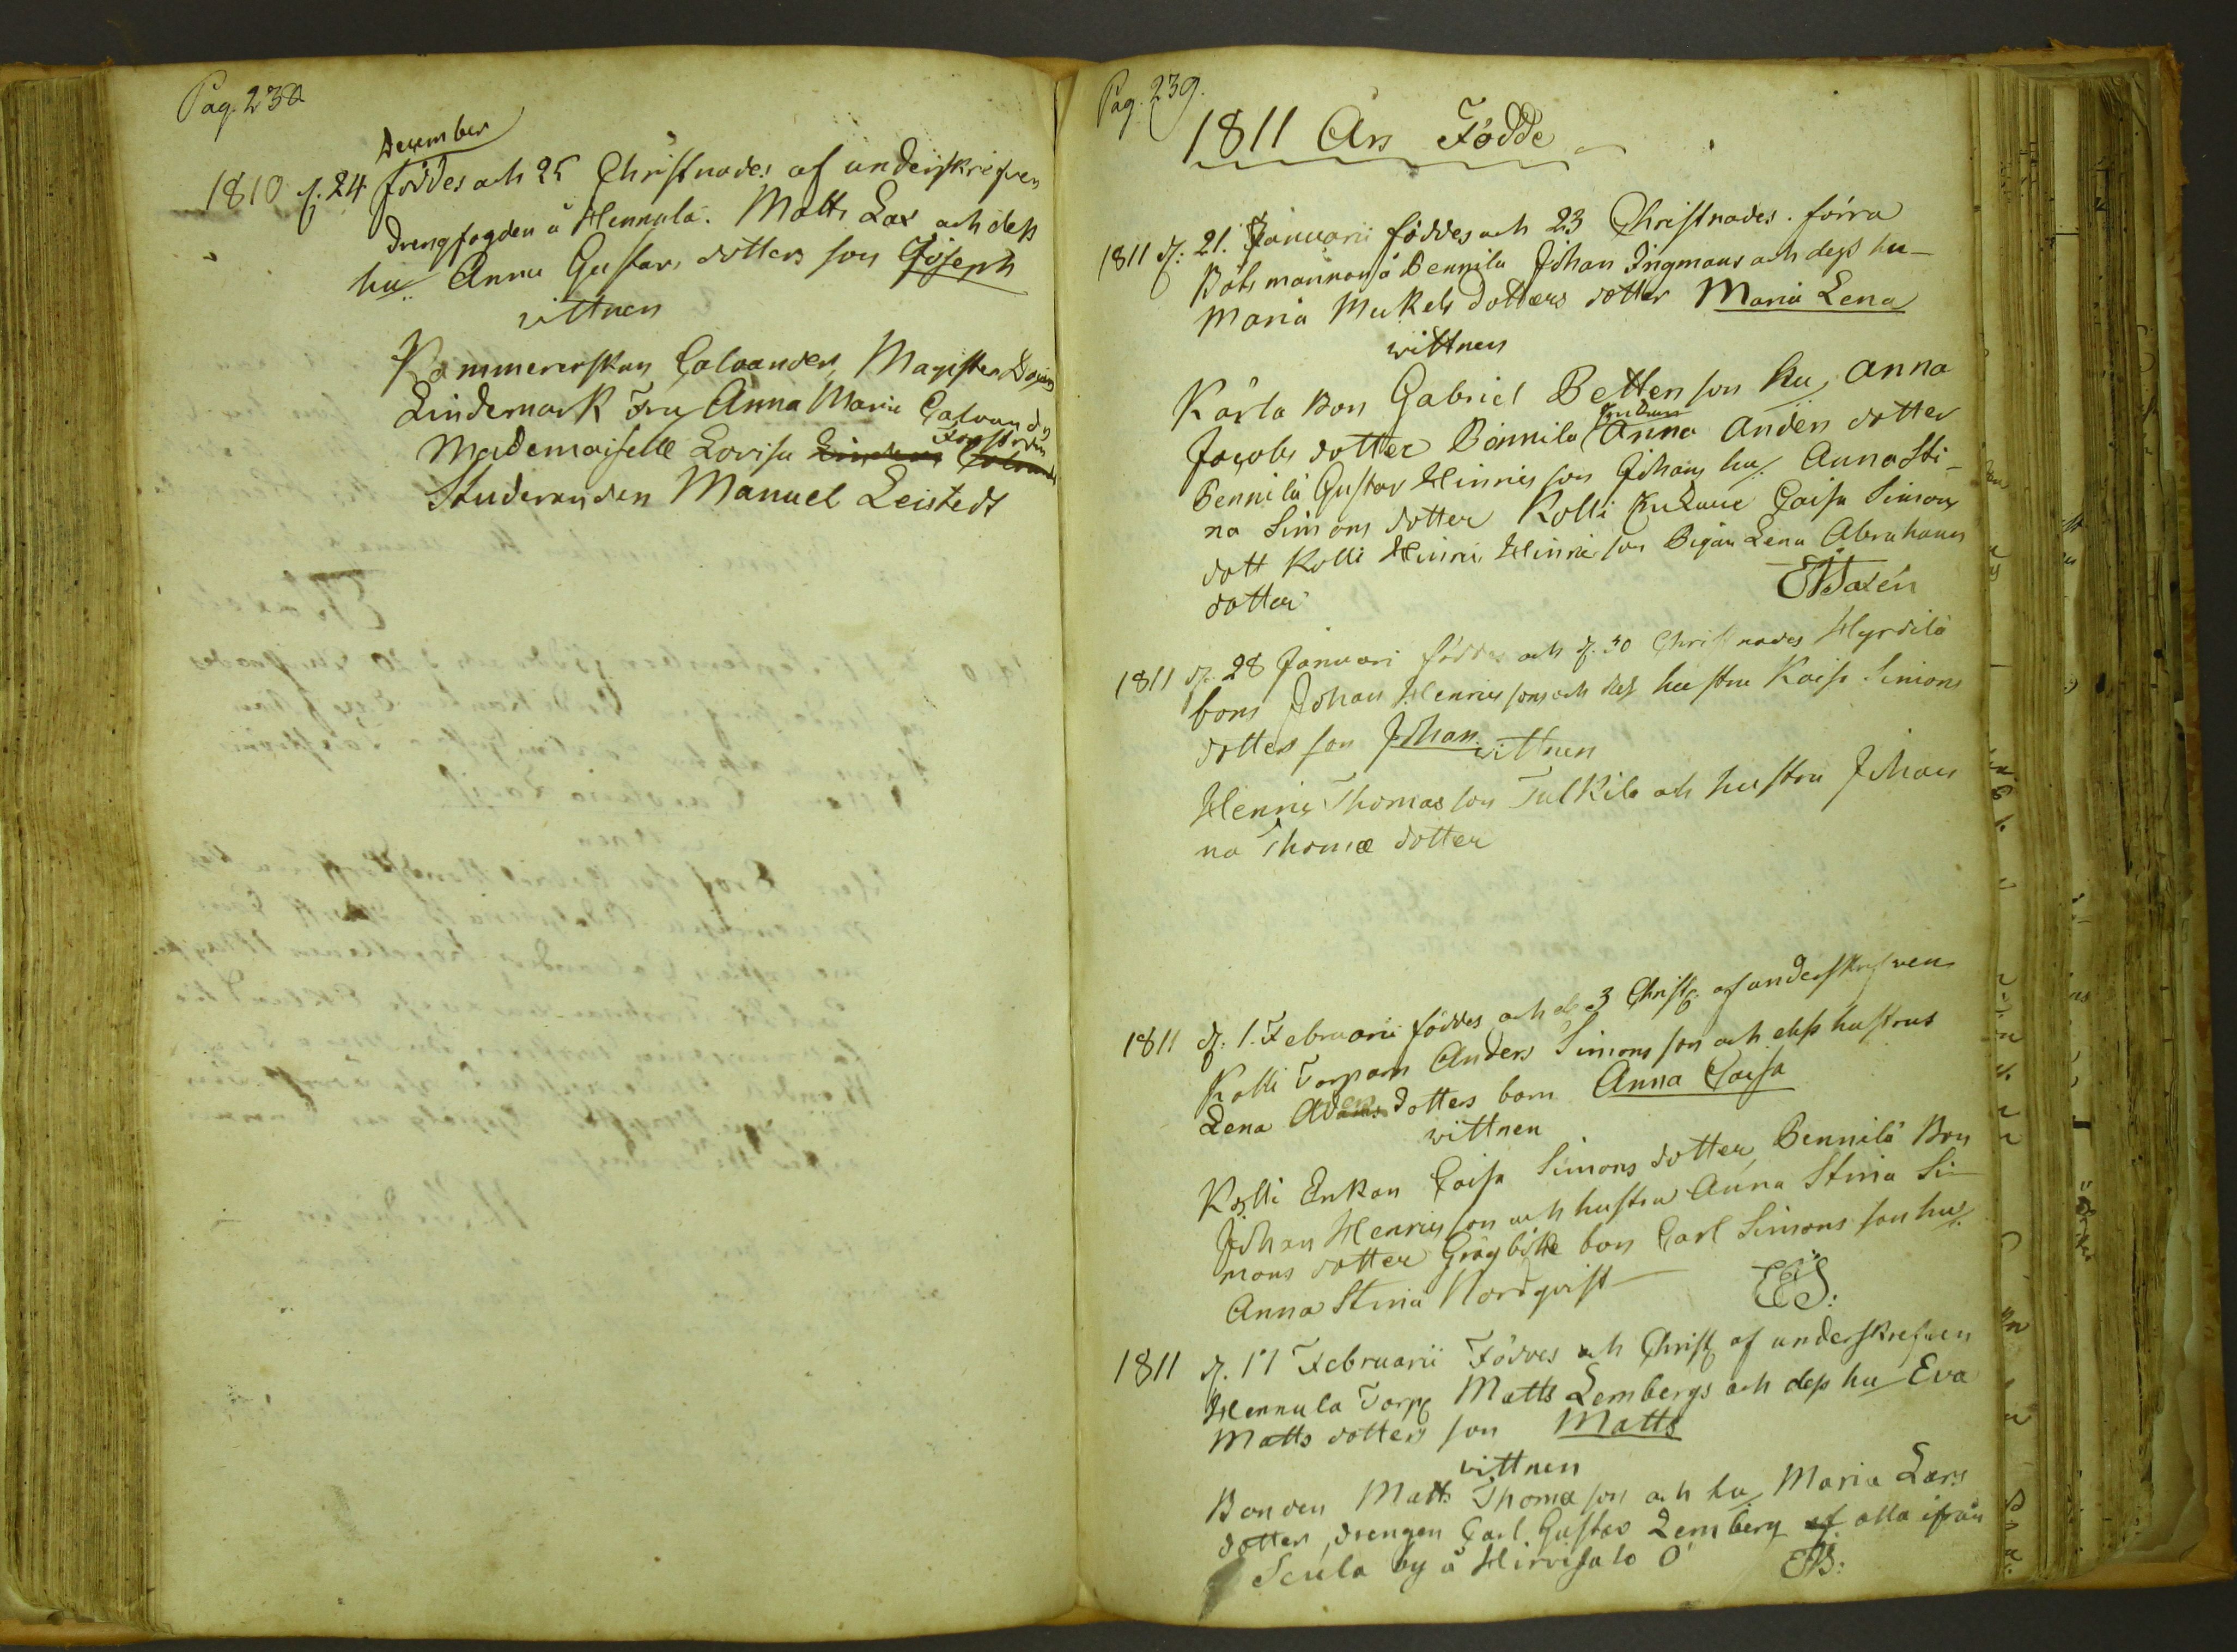 Pag. 238
December
1810 d. 24 föddes och 25 Christnades af underskrefven
Drengfogden å Hennala. Matts Lax och dess
hu Anna Gustavs dotters son Joseph
vittnen
Kammererskan Calvander, Magister
Lindemark Fru Anna Maria Calvander
Mademoiselle Lovisa
Studeranden Manuel Leistedt
Pag. 239.
1811 Års Födde
1811 d. 21. Januarii föddes och 23 Christnades. förra
Båtsmannen å Bennila Johan Ingmans och dess hu
Maria Mickels dotters dotter Maria Lena
wittnen
Kärla bon Gabriel Bettenson hu Anna
Jacobs dotter Bennila Anna Anden dotter
Bennilä Gustav Hinricsson Johans hu. Anna Sti-
na Simons dotter Kolli Caisa Simons
dott Kolli Hinric Hinricsson Lena Abrahams
dotter
1811 d. 28 Januari föddes och d. 30 Christnades Hyrdilä
bons Johan Henricssons och dess hustru Kaisa Simons
dotters son Johan. wittnen
Henric Thomasson Tulkila och hustru Johan
na Thomæ dotter
1811 d. 1. Februarii föddes och de 3 Christ. af underskrefven
Kolli Torparn Anders Simonsson och dess hustrus
Lena dotters barn Anna Caisa
wittnen
Kolli Enkan Caisa Simons dotter, Bennilä Bon
Johan Henricsson och hustru Anna Stina Si-
mons dotter Gräggböle bon Carl Simons son hu
Anna Stina Nordqvist
1811 d. 17 Februarii Föddes och Christ af underskrefven
Hennula Torp Matts Lembergs och dess hu Eva
Matts dotters son Matts
wittnen
Bonden Matts Thomæson och hu Maria Lars
dotter, drengen Carl Gustav Lemberg af alla ifrån
by å Hirvisalo Ö